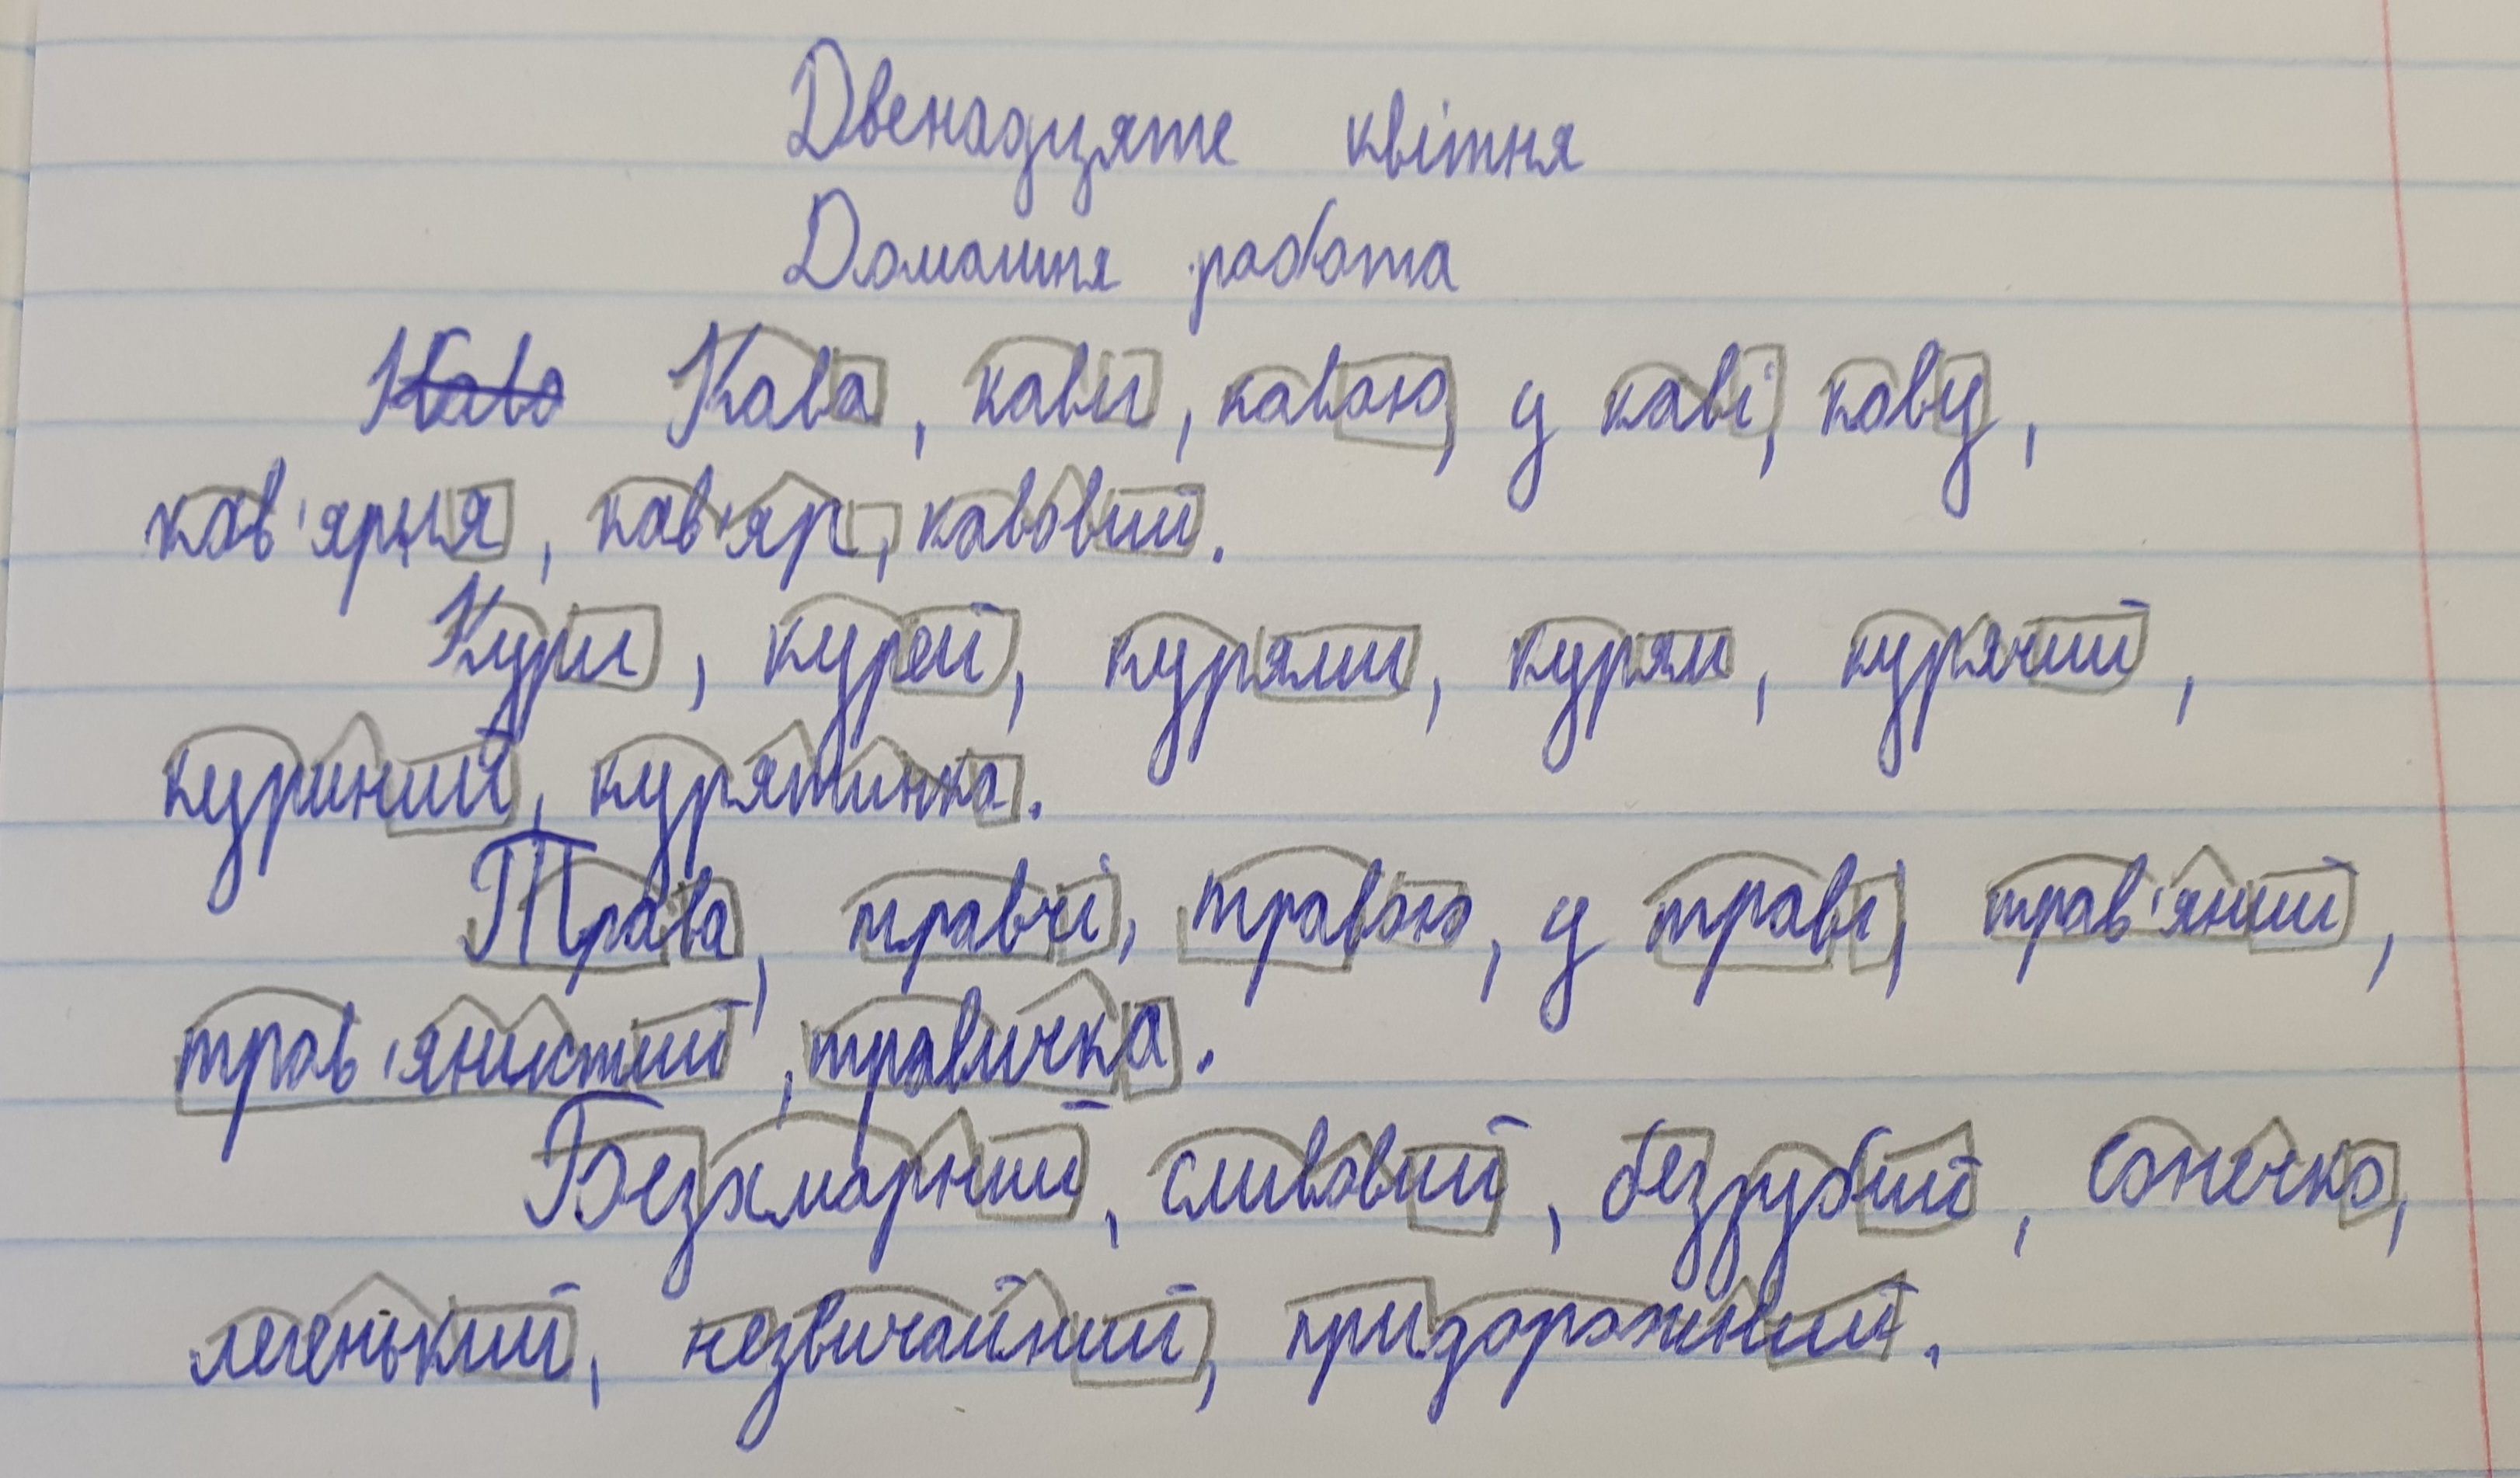 Двенадцяте квітня
Домашня робота
Кава, кави, кавою, у каві, каву,
кав'ярня, кав'яр, кавовий.
Кури, курей, курями, курям, курячий,
куриний, курятинка.
Трава, травчі, травою, у траві, трав'яний,
трав'янистий, травичка.
Безхмарний, сливовий, беззубий, сонечко,
легенький, незвичайний, придорожній.